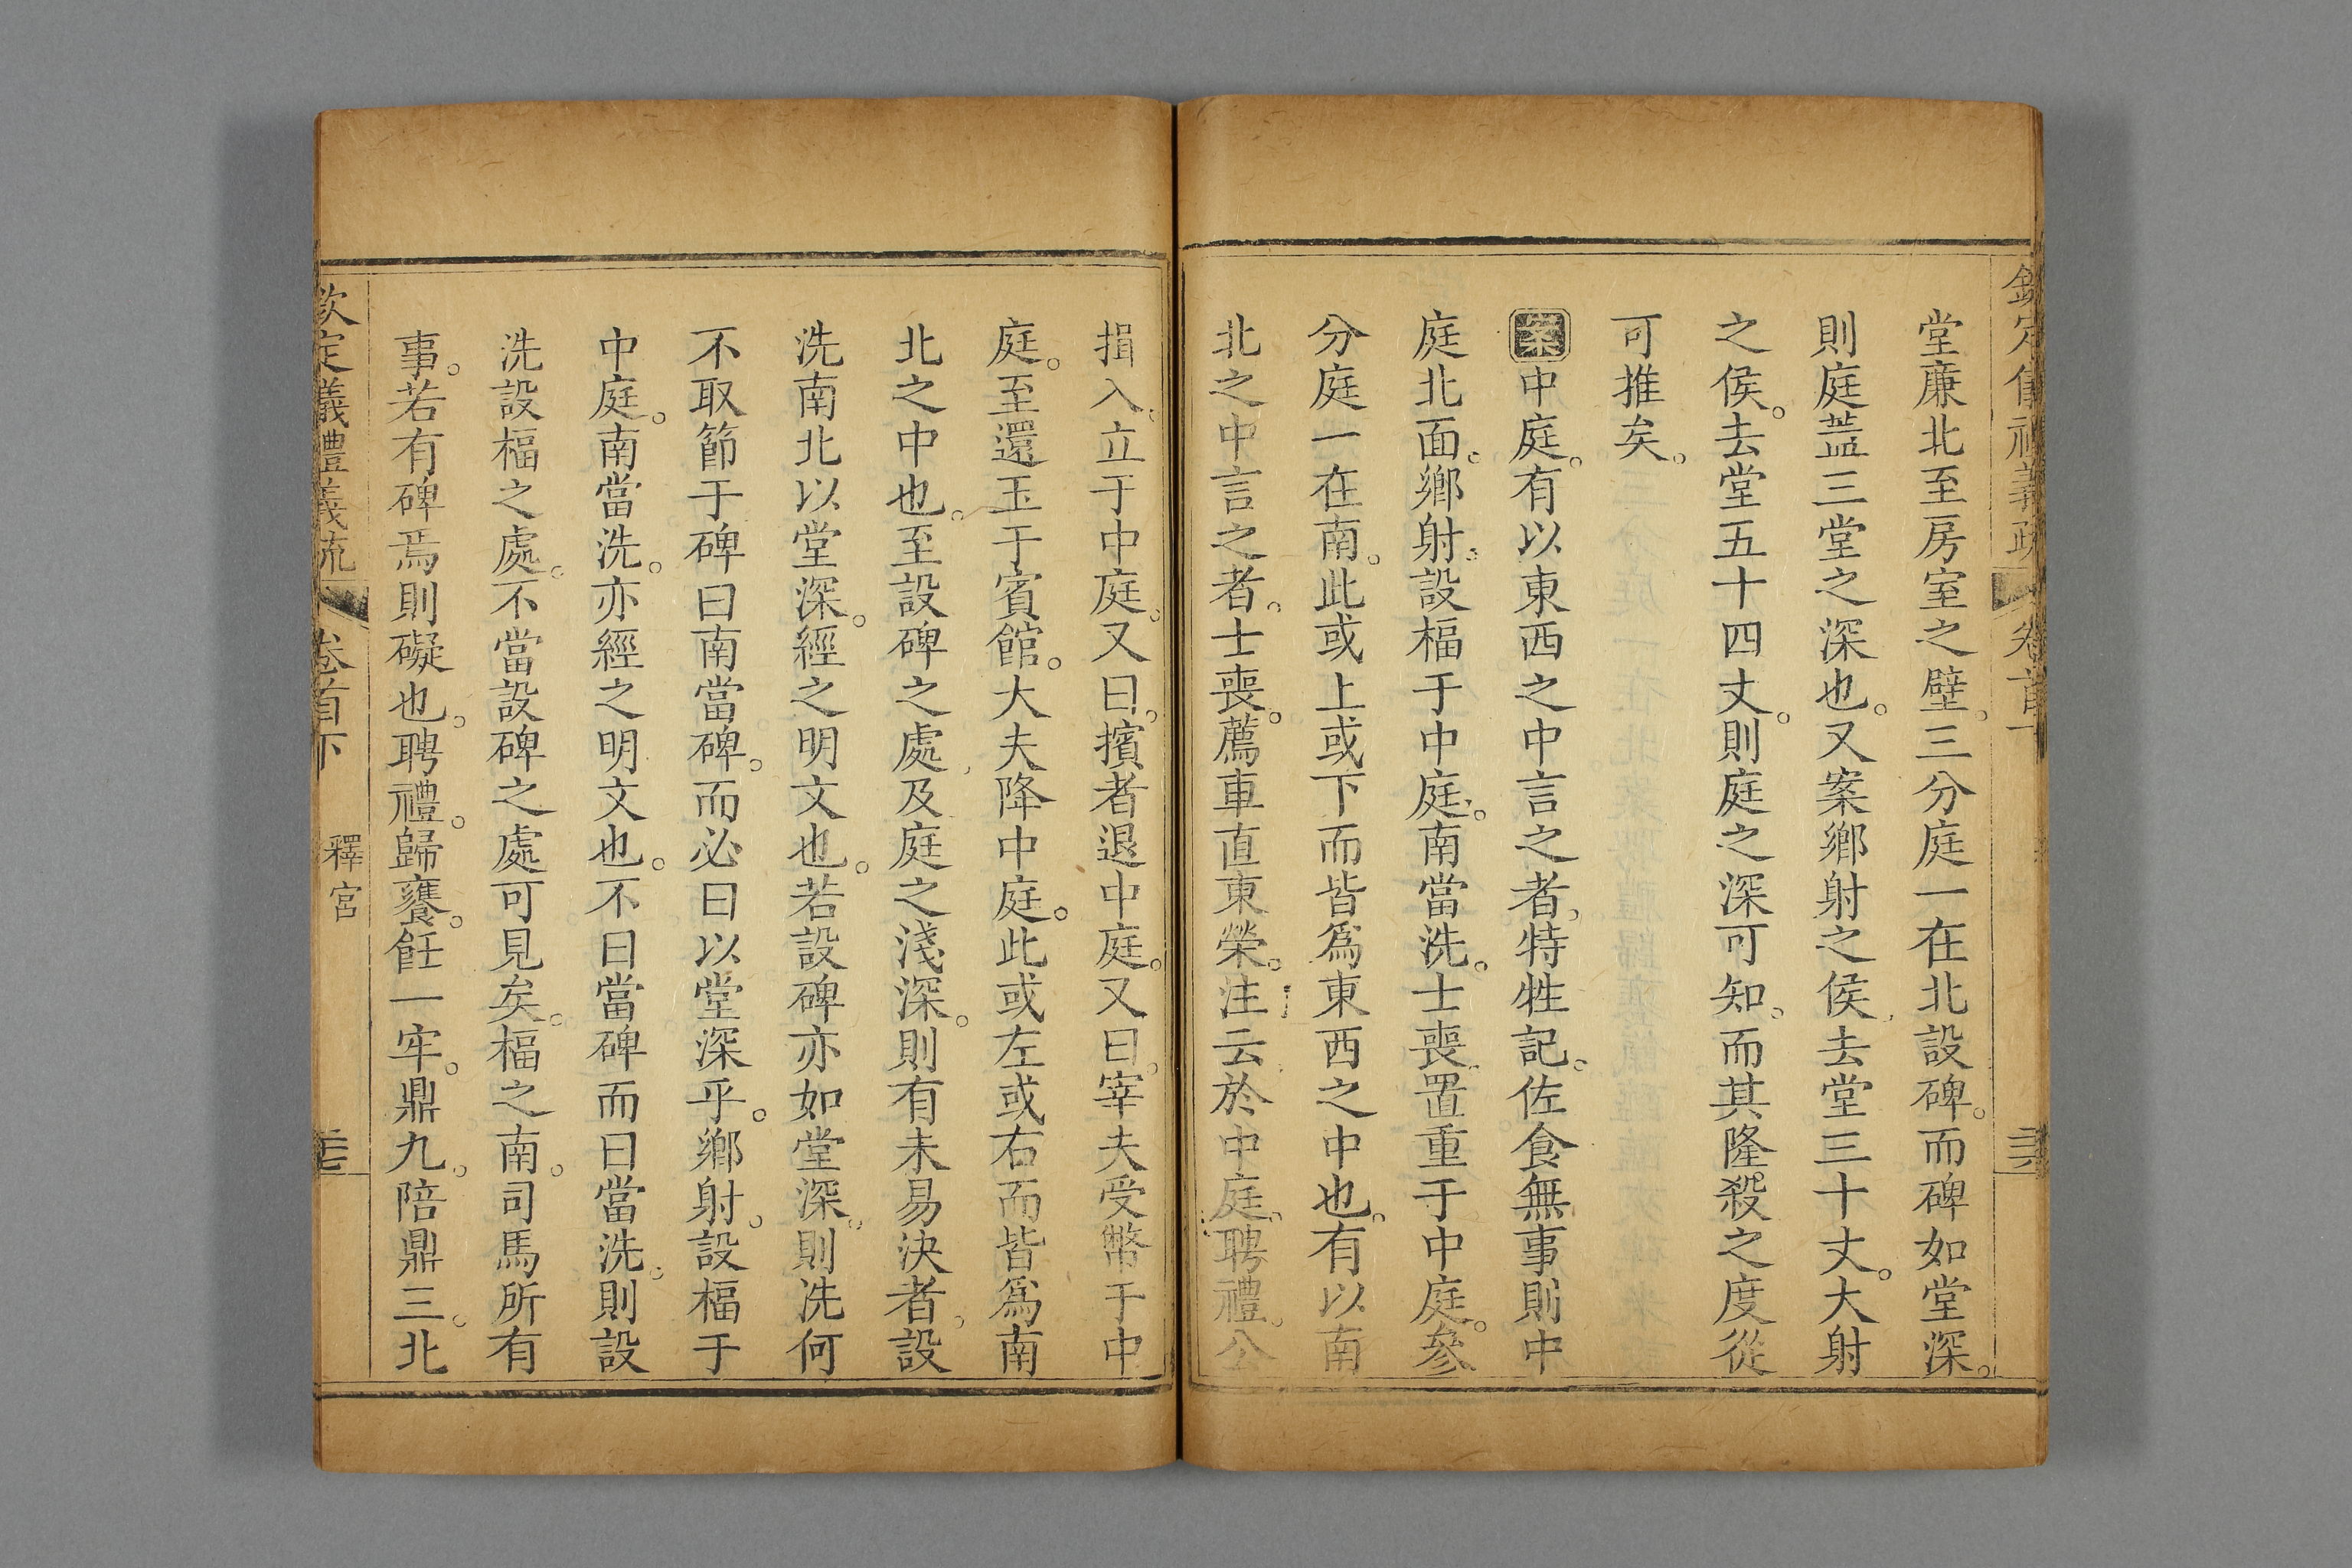 欽定儀禮義疏 卷首下 三六
堂廉北至房室之壁三分庭一在北設碑。而碑如堂深。
則庭葢三堂之深也。又案鄉射之侯去堂三十丈。大射
之侯。去堂五十四丈。則庭之深可知。而其隆殺之度從
可推矣。
案中庭。有以東西之中言之者。特牲記。佐食無事則中
庭北面。鄉射。設楅于中庭。南當洗。士喪置重于中庭。參
分庭一在南。此或上或下而皆爲東西之中也。有以南
北之中言之者。士喪。薦車直東榮。注云於中庭。聘禮。公
揖入。立于中庭。又曰。擯者退中庭。又曰。宰夫受幣于中
庭。至還玉于賓館。大夫降中庭。此或左或右而皆爲南
北之中也。至設碑之處及庭之淺深。則有未易決者。設
洗南北以堂深。經之明文也。若設碑亦如堂深。則洗何
不取節于碑曰南當碑。而必曰以堂深乎。鄉射。設楅于
中庭。南當洗。亦經之明文也。不曰當碑而曰當洗。則設
洗設楅之處。不當設碑之處可見矣。楅之南。司馬所有
事。若有碑焉則礙也。聘禮。歸饔。飪一牢。鼎九。陪鼎三。北
欽定儀禮義疏 卷首下 釋宮 三七